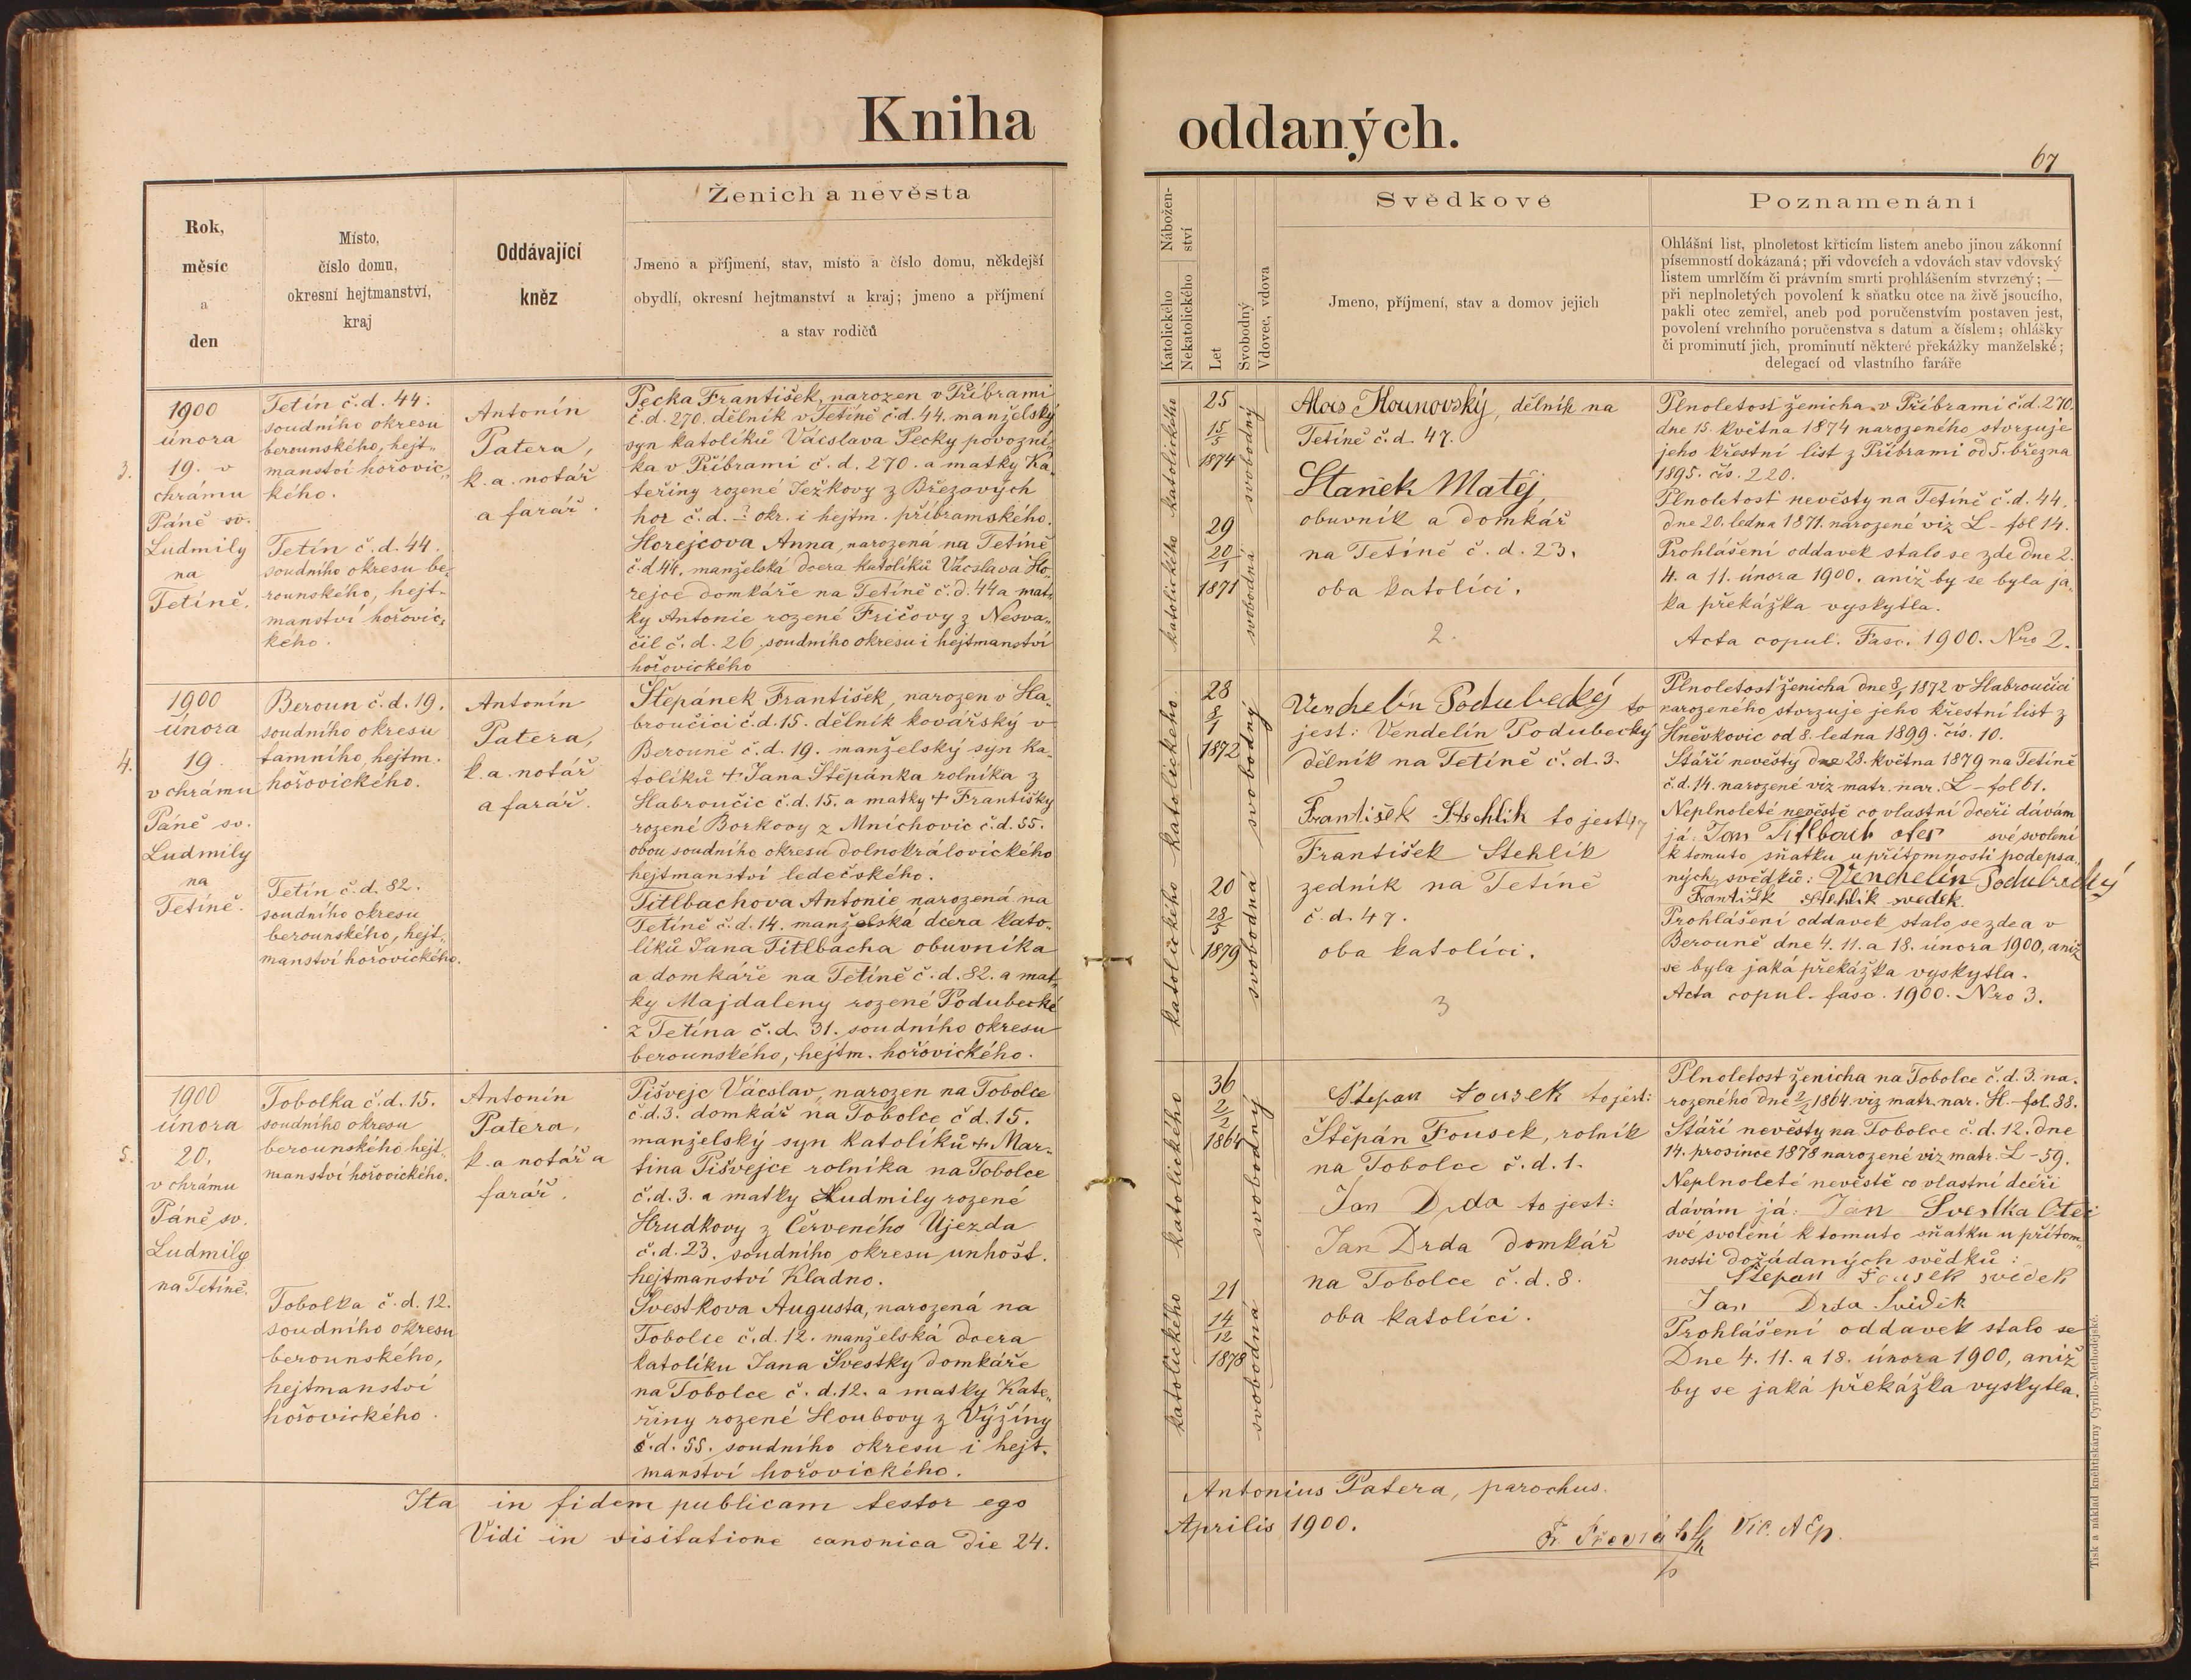 Kniha oddaných.
67
Rok,
měsíc
a
den
Místo,
číslo domu,
okresní hejtmanství,
kraj
Oddávající
kněz
Ženich a nevěsta
Jmeno a příjmení, stav, místo a číslo domu, někdejší
obydlí, okresní hejtmanství a kraj; jmeno a příjmení
a stav rodičů
Nábožen-
ství
Katolického
Nekatolického
Let
Svobodný
Vdovec, vdova
Svědkové
Jmeno, příjmení, stav a domov jejich
Poznamenání
Ohlášní list, plnoletost křticím listem anebo jinou zákonní
písemností dokázaná; při vdovcích a vdovách stav vdovský
listem umrlčím či právním smrti prohlášením stvrzený; —
při neplnoletých povolení k sňatku otce na živě jsoucího,
pakli otec zemřel, aneb pod poručenstvím postaven jest,
povolení vrchního poručenstva s datum a číslem; ohlášky
či prominutí jich, prominutí některé překážky manželské;
delegací od vlastního faráře
3.
1900
února
19. v
chrámu
Páně sv.
Ludmily
na
Tetíně.
Tetín č.d. 44.
soudního okresu
berounského, hejt-
manství hořovic-
kého.
Tetín č.d. 44.
soudního okresu be-
rounského, hejt-
manství hořovic-
kého.
Antonín
Patera,
k. a. notář
a farář.
Pecka František, narozen v Příbrami
č.d. 270. dělník v Tetíně č.d. 44. manželský
syn katolíků Václava Pecky povozní-
ka v Příbrami č. d. 270. a matky Ka-
teřiny rozené Ježkovy z Březových
hor č. d. ? okr. i hejtm. příbramského.
Horejcova Anna, narozená na Tetíně
č.d 44. manželská dcera katolíků Václava Ho-
rejce domkáře na Tetíně č. d. 44 a mat-
ky Antonie rozené Fričovy z Nesva-
čil č. d. 26, soudního okresu i hejtmanství
hořovického
katolického katolického
25
15/5
1874
29
20/1
1871
svobodný
svobodná
Alois Hounovský, dělník na
Tetíně č.d. 47.
Staněk Matěj,
obuvník a domkář
na Tetíně č. d. 23.
oba katolíci.
2.
Plnoletost ženicha v Příbrami č.d. 270.
dne 15. května 1874 narozeného stvrzuje
jeho křestní list z Příbrami od 5. března
1895. čís. 220.
Plnoletost nevěsty na Tetíně č.d. 44.
dne 20. ledna 1871. narozené viz L - fol 14.
Prohlášení oddavek stalo se zde dne 2.
4. a 11. února 1900. aniž by se byla ja-
ka překážka vyskytla.
Acta copul. Fasc. 1900. Nro 2.
4.
1900
února
19.
v chrámu
Páně sv.
Ludmily
na
Tetíně.
Beroun č.d. 19.
soudního okresu
tamního, hejtm.
hořovického.
Tetín č.d. 82.
soudního okresu
berounského, hejt-
manství hořovického.
Antonín
Patera,
k. a. notář
a farář.
Štěpánek František, narozen v Ha-
broučici č.d. 15. dělník kovářský v
Berouně č.d. 19. manželský syn ka-
tolíků + Jana Štěpánka rolníka z
Habroučic č.d. 15. a matky + Františky
rozené Borkovy z Mnichovic č.d. 55.
obou soudního okresu dolnokrálovického
hejtmanství ledečského.
Titlbachova Antonie narozená na
Tetíně č.d. 14. manželská dcera kato-
líků Jana Titlbacha obuvníka
a domkáře na Tetíně č.d. 82. a mat-
ky Majdaleny rozené Podubecké
z Tetína č.d. 31. soudního okresu
berounského, hejtm. hořovického.
katolického katolického
28
8/1
1872
20
28/5
1879
svobodný
svobodná
Vendelín Podubecký to
jest: Vendelín Podubecký
dělník na Tetíně č. d. 3.
František Stehlík to jest
František Stehlík
zedník na Tetíně
č. d. 47.
oba katolíci.
3
Plnoletost ženicha dne 8/1 1872 v Habroučici
narozeného stvrzuje jeho křestní list z
Hněvkovic od 8. ledna 1899. čís. 10.
Stáří nevěsty dne 28. května 1879 na Tetíně
č.d. 14. narozené viz matr. nar. L - fol 61.
Neplnoleté nevěstě co vlastní dceři dávám
já: Jan Titlbach otec své svolení
k tomuto sňatku u přítomnosti podepsa-
ných svědků: Vendelín Podubecký
František Stehlík svedek.
Prohlášení oddavek stalo se zde a v
Berouně dne 4. 11. a 18. února 1900, aniž
se byla jaká překážka vyskytla.
Acta copul. fasc. 1900. Nro 3.
5.
1900
února
20.
v chrámu
Páně sv.
Ludmily
na Tetíně.
Tobolka č.d. 15.
soudního okresu
berounského hejt-
manství hořovického.
Tobolka č.d. 12.
soudního okresu
berounského,
hejtmanství
hořovického.
Antonín
Patera,
k. a notář a
farář.
Pišvejc Václav, narozen na Tobolce
č.d. 3. domkář na Tobolce č d. 15.
manželský syn katolíků + Mar-
tina Pišvejce rolníka na Tobolce
č.d. 3. a matky Ludmily rozené
Hrudkovy z Červeného Újezda
č.d. 23. soudního okresu unhošt.
hejtmanství Kladno.
Švestkova Augusta, narozená na
Tobolce č.d. 12. manželská dcera
katolíku Jana Švestky domkáře
na Tobolce č. d. 12. a matky Kate-
řiny rozené Houbovy z Výžíny
č.d. 55. soudního okresu i hejt-
manství hořovického.
katolického katolického
36
2/2
1864
21
14/12
1878
svobodný
svobodná
Štepan Fousek to jest:
Štěpán Fousek, rolník
na Tobolce č.d. 1.
Jan Drda to jest:
Jan Drda domkář
na Tobolce č.d. 8.
oba katolíci.
Plnoletost ženicha na Tobolce č.d. 3. na-
rozeného dne 2/2 1864. viz matr. nar. H. - fol. 88.
Stáří nevěsty na Tobolce č.d. 12. dne
14. prosince 1878 narozené viz matr. L - 59.
Neplnoleté nevěstě co vlastní dceři
dávám já: Jan Svestka Otec
své svolení k tomuto sňatku u přítom-
nosti dožádaných svědků:
Štepan Fousek svědek
Jan Drda Svidek
Prohlášení oddavek stalo se
Dne 4. 11. a 18. února 1900, aniž
by se jaká překážka vyskytla.
Ita in fidem publicam testor ego Antonius Patera, parochus.
Vidi in visitatione canonica die 24. Aprilis 1900.
Vic. A Ep.
Tisk a náklad knihtiskárny Cyrillo-Methodějské.